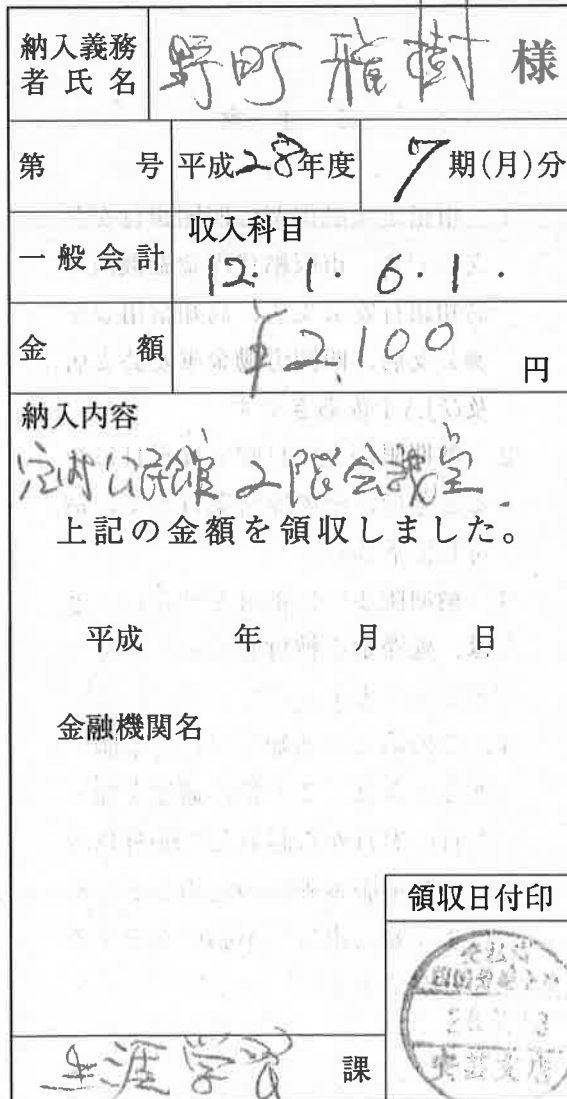 納入義務者氏名 野町 雅樹 様
第 号 平成28年度 7期(月)分
一般会計 収入科目
12・1・6・1・
金額 ¥2,100円
納入内容
公民館2階会議室
上記の金額を領収しました。
平成 年 月 日
金融機関名
領収日付印
生涯学習課